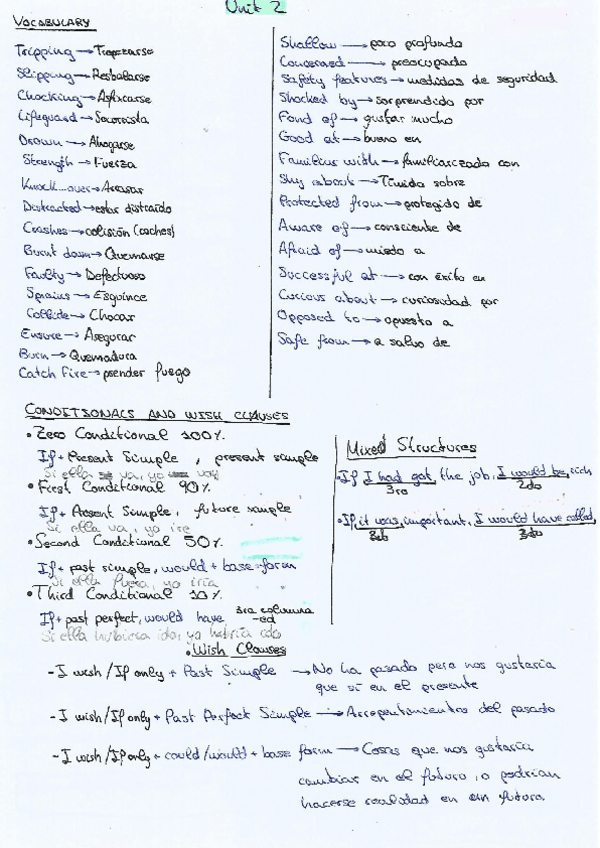 Unit 2
VOCABULARY
Tripping → Tropezarse
Slipping → Resbalarse
Chocking → Asfixiarse
Lifeguard → Socorrista
Drown → Ahogarse
Strength → Fuerza
Knock...over → Arrasar
Distracted → estar distraído
Crashes → colisión (coches)
Burnt down → Quemarse
Faulty → Defectuoso
Sprains → Esguince
Collide → Chocar
Ensure → Asegurar
Burn → Quemadura
Catch Fire → prender fuego
Shallow → poco profundo
Concerned → preocupado
Safety features → medidas de seguridad
Shocked by → sorprendido por
Fond of → gustar mucho
Good at → bueno en
Familiar with → familiarizado con
Shy about → Tímido sobre
Protected from → protegido de
Aware of → consciente de
Afraid of → miedo a
Successful at → con éxito en
Curious about → curiosidad por
Opposed to → opuesto a
Safe from → a salvo de
CONDITIONALS AND WISH CLAUSES
• Zero Conditional 100%
If + Present Simple, present simple
Si ella va, yo voy
• First Conditional 90%
If + Present Simple, future simple
Si ella va, yo ire
• Second Conditional 50%
If + past simple, would + base form
Si ella fuera, yo iria
• Third Conditional 10%
If + past perfect, would have 3ra columna -ed
Si ella hubiera ido, yo habría ido
Mixed Structures
• If I had got the job, I would be rich
3ro 2do
• If it was important, I would have called,
• Wish Clauses
- I wish / If only + Past Simple → No ha pasado pero nos gustaria
que si en el presente
- I wish / If only + Past Perfect Simple → Arrepentimientos del pasado
- I wish / If only + could/would + base form → Cosas que nos gustaria
cambiar en el futuro, o podrian
hacerse realidad en un futuro.